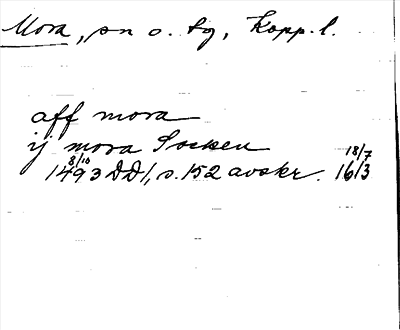 Mora, sn o. tg, Kopp. l.
aff mora
ij mora Socken
8/10 18/7
1493 DD1, s. 152 avskr. 16/3